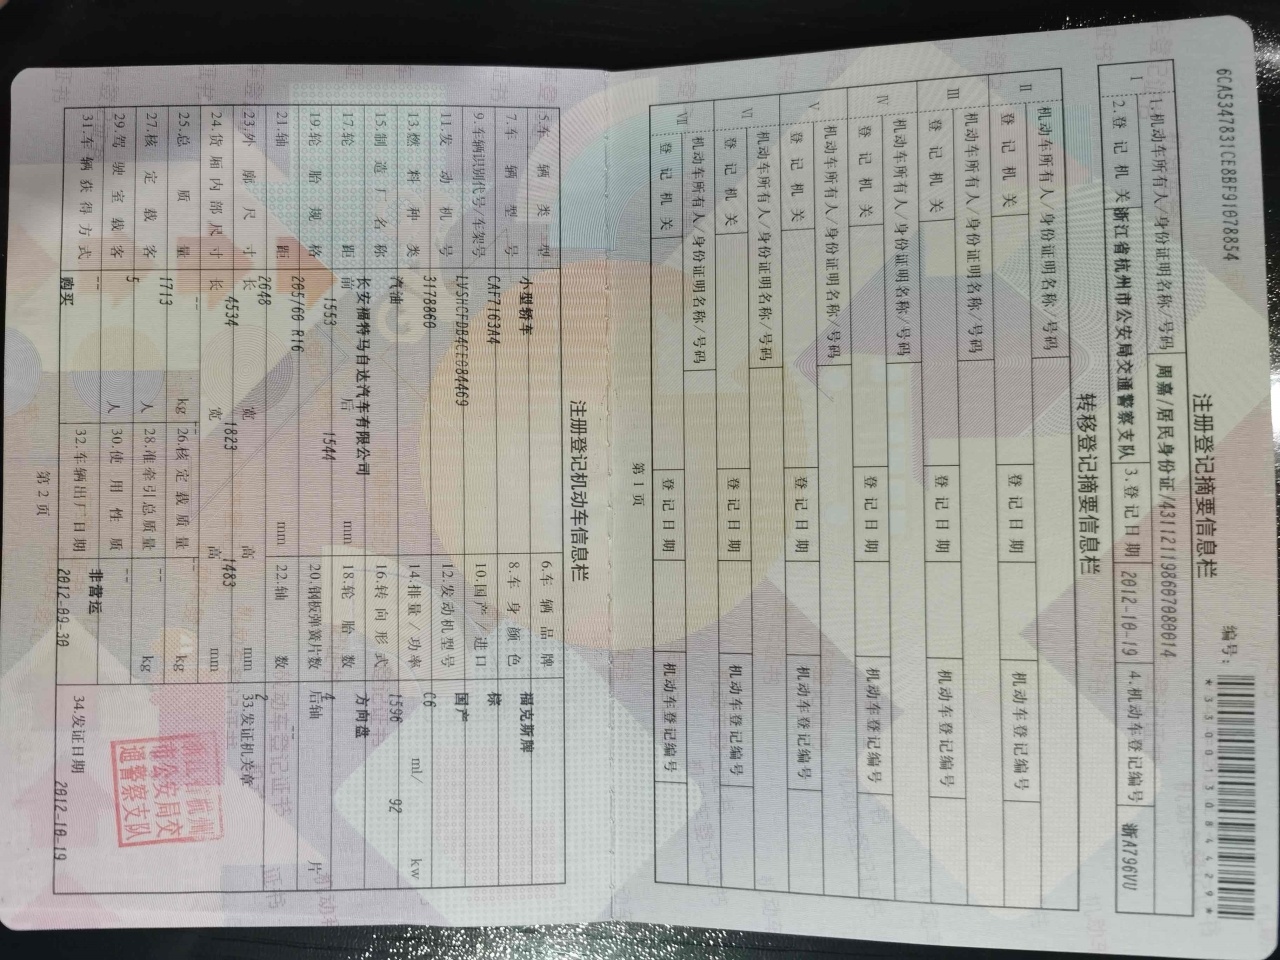 6CA5347831CE8BF91078854
编号:
*330013084429*
注册登记摘要信息栏
I 1.机动车所有人/身份证明名称/号码 周嘉/居民身份证/431121198607080014
2.登记机关 浙江省杭州市公安局交通警察支队 3.登记日期 2012-10-19 4.机动车登记编号 浙A796VU
转移登记摘要信息栏
II 机动车所有人/身份证明名称/号码
登记机关 登记日期 机动车登记编号
III 机动车所有人/身份证明名称/号码
登记机关 登记日期 机动车登记编号
IV 机动车所有人/身份证明名称/号码
登记机关 登记日期 机动车登记编号
V 机动车所有人/身份证明名称/号码
登记机关 登记日期 机动车登记编号
VI 机动车所有人/身份证明名称/号码
登记机关 登记日期 机动车登记编号
VII 机动车所有人/身份证明名称/号码
登记机关 登记日期 机动车登记编号
第1页
注册登记机动车信息栏
5.车辆类型 小型轿车 6.车辆品牌 福克斯牌
7.车辆型号 CAF7163A4 8.车身颜色 棕
9.车辆识别代号/车架号 LVSHCFDB4CE084469 10.国产/进口 国产
11.发动机号 3178860 12.发动机型号 C6
13.燃料种类 汽油 14.排量/功率 1596 ml/ 92 kw
15.制造厂名称 长安福特马自达汽车有限公司 16.转向形式 方向盘
17.轮距 前 1553 后 1544 mm 18.轮胎数 4
19.轮胎规格 205/60 R16 20.钢板弹簧片数 后轴 -- 片
21.轴距 2648 mm 22.轴数 2
23.外廓尺寸 长 4534 宽 1823 高 1483 mm 33.发证机关章
24.货厢内部尺寸 长 -- 宽 -- 高 -- mm
25.总质量 1713 kg 26.核定载质量 -- kg
27.核定载客 5 人 28.准牵引总质量 -- kg
29.驾驶室载客 -- 人 30.使用性质 非营运
31.车辆获得方式 购买 32.车辆出厂日期 2012-09-30 34.发证日期 2012-10-19
市公安局交
通警察支队
第2页